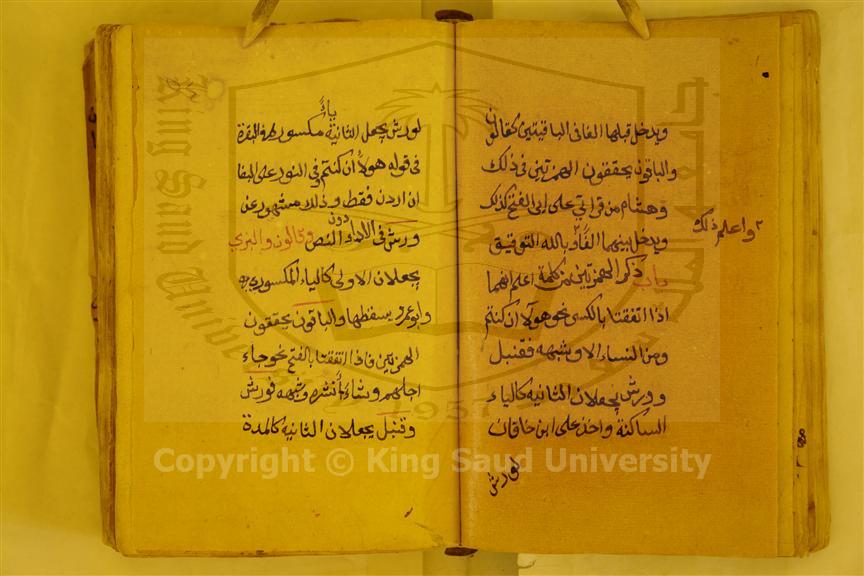 ويدخل قبلها الفا في الباقيتين كقالون
والباقون يحققون الهمزتين في ذلك
وهشام من قراتي على ابي الفتح كذلك
ويدخل بينهما الفا وبالله التوفيق
واعلم ذلك
باب ذكر الهمزتين من كلمة اعلم انهما
اذا اتفقتا بالكسر نحو هولا ان كنتم
ومن النساء الا وشبهه فقنبل
وورش يجعلان الثانية كالياء
الساكنة واخذ على ابن خاقان
لورش
لورش يجعل الثانية ياءً مكسورة في البقرة
في قوله هولاء ان كنتم وفي النور على البغا
ان اردن فقط وذلك مشهور عن
ورش في الاداء دون النص وقالون والبزي
يجعلان الاولى كالياء المكسورة
وابو عمرو يسقطها والباقون يحققون
الهمزتين فاذا اتفقتا بالفتح نحو جاء
اجلهم وشاء أنشره وشبهه فورش
وقنبل يجعلان الثانية كالمدة
King Saud University
1957
Copyright © King Saud University